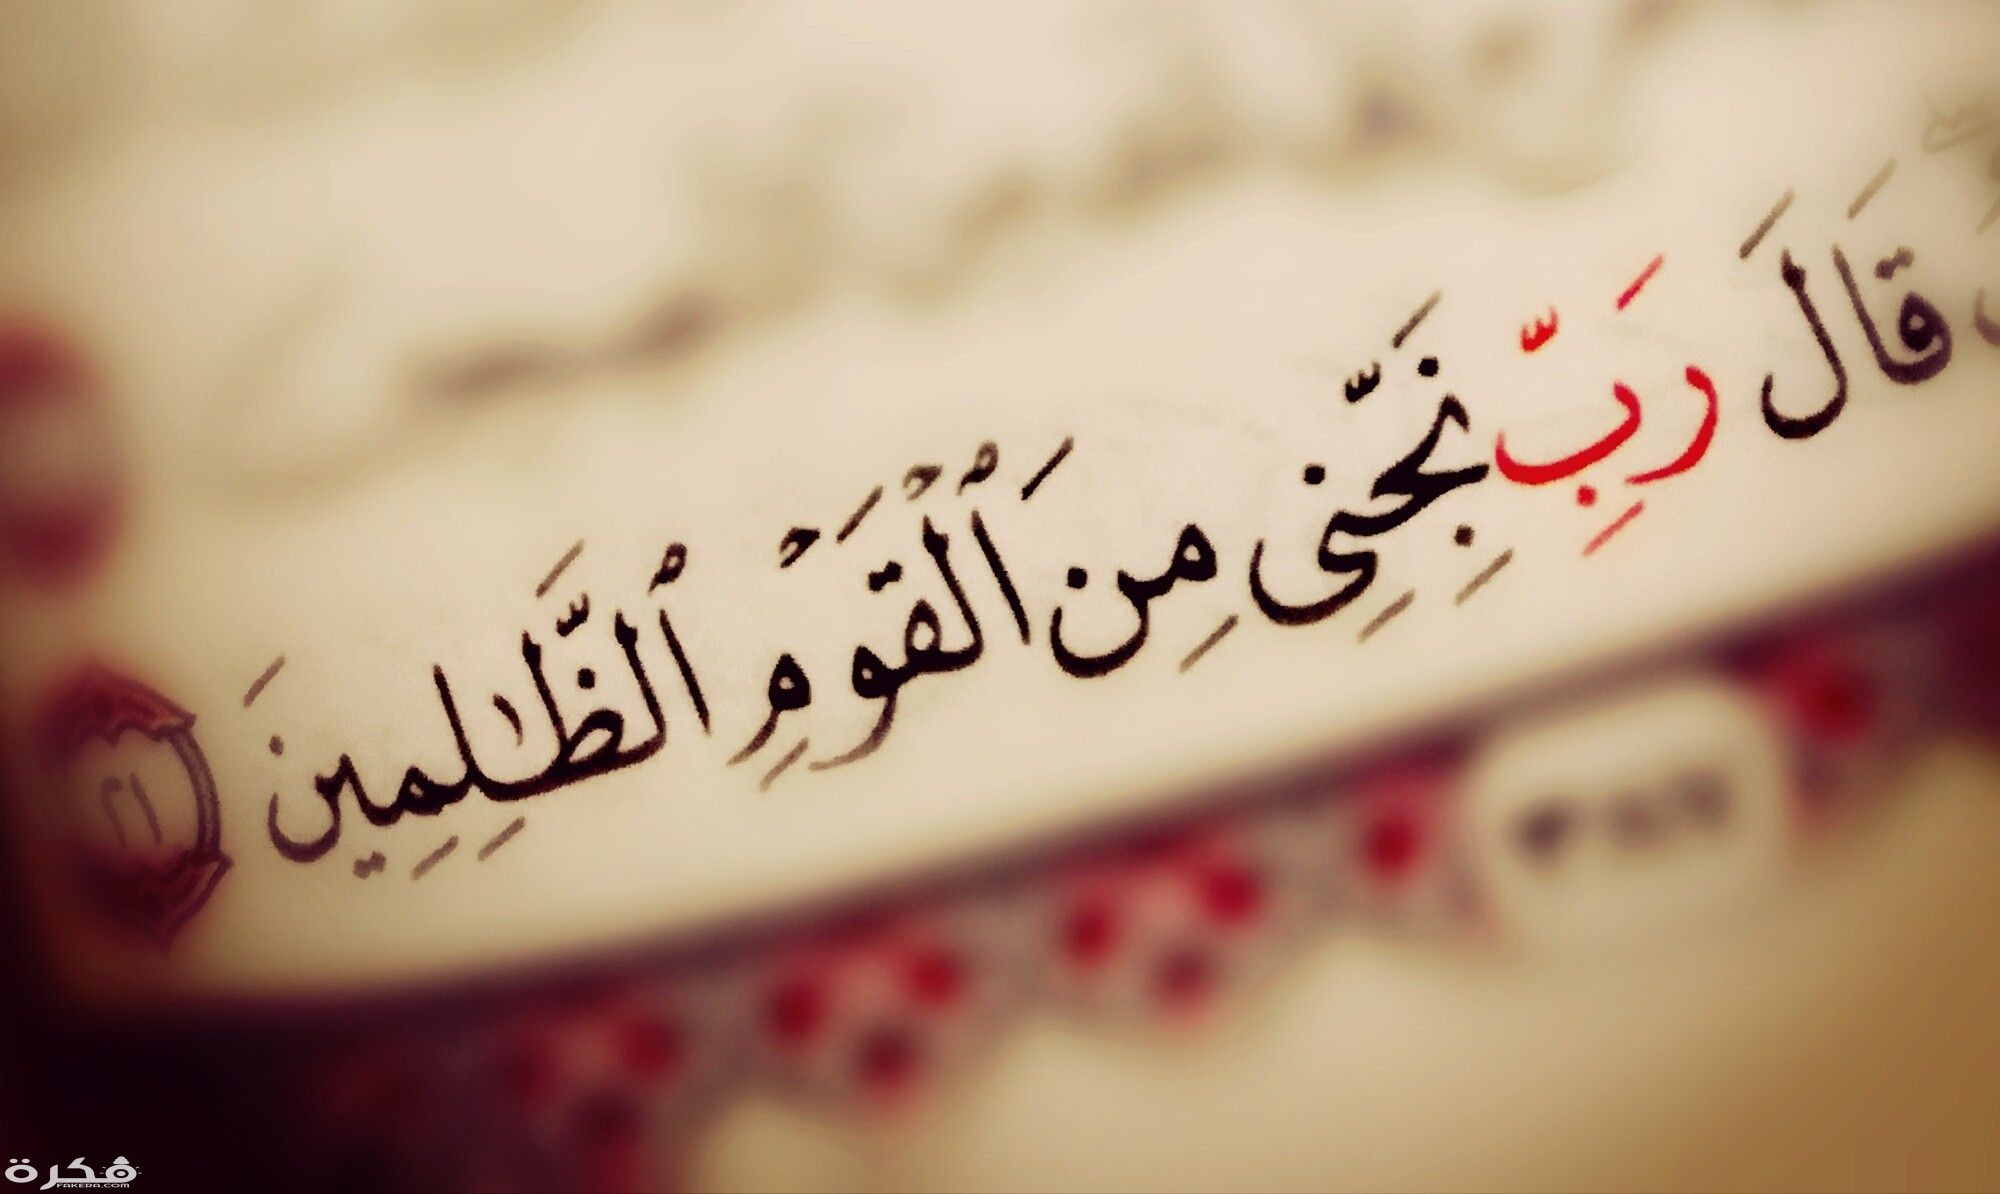 قَالَ رَبِّ نَجِّنِى مِنَ ٱلْقَوْمِ ٱلظَّـٰلِمِينَ ٢١
فكرة
FAKERA.COM